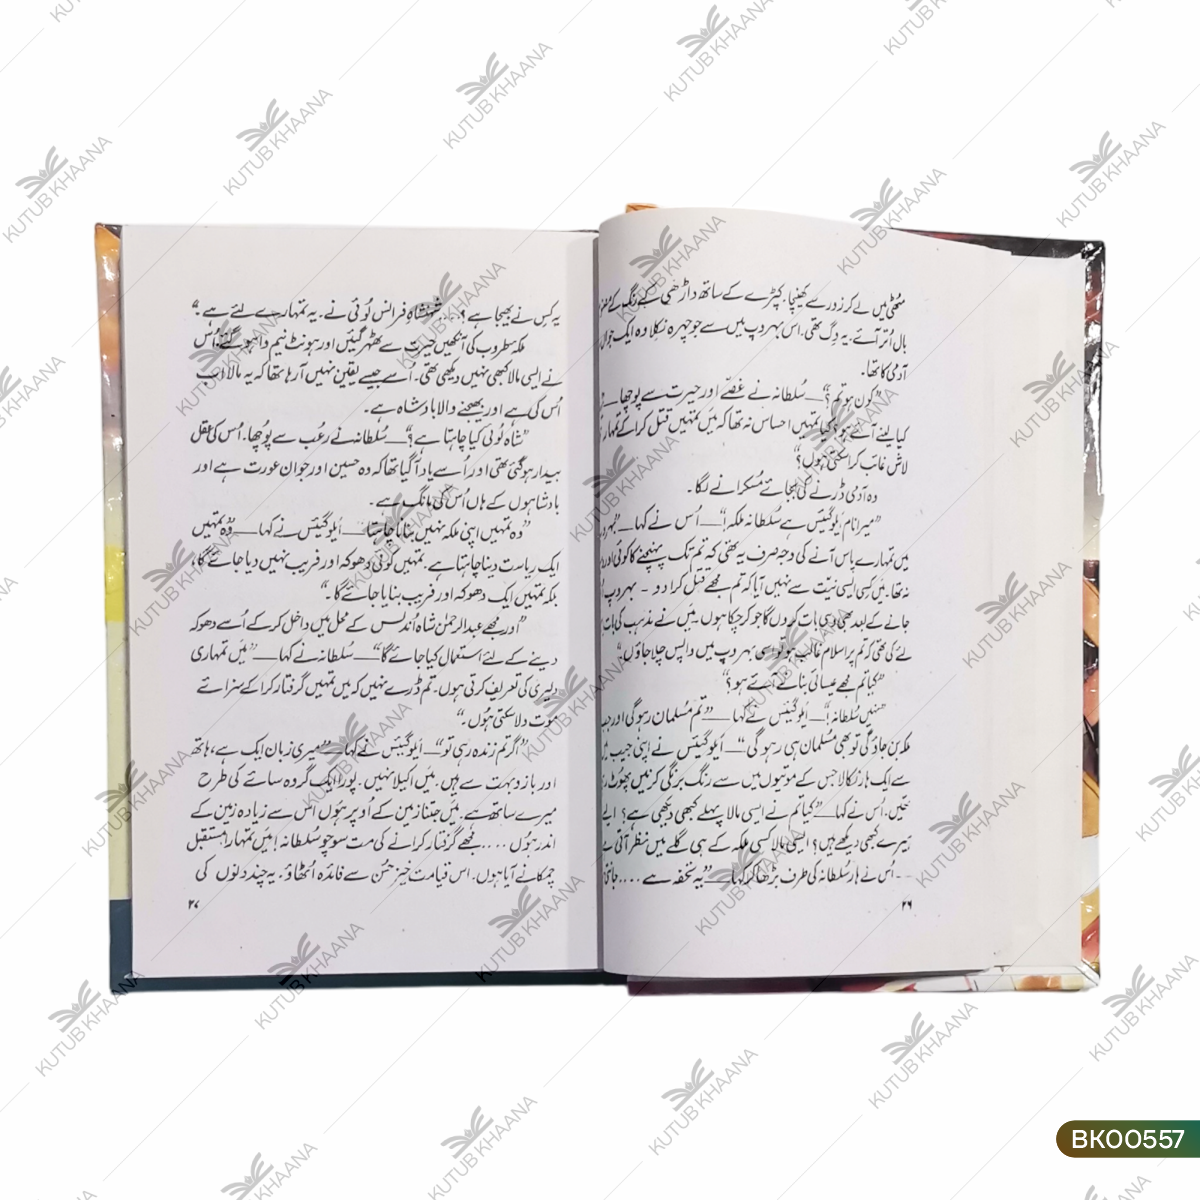 مٹھی میں لے کر زور سے کھینچا۔ کپڑے کے ساتھ داڑھی کے رنگ کے
بال اُتر آئے۔ یہ وِگ تھی۔ اس بہروپ میں سے جو چہرہ نکلا وہ ایک جواں
آدمی کا تھا۔
”کون ہو تم؟“ — سُلطانہ نے غصّے اور حیرت سے پوچھا —
کیا لینے آئے ہو؟ کیا تمہیں احساس نہ تھا کہ میں تمہیں قتل کرا کے تمہاری
لاش غائب کرا سکتی ہوں؟“
وہ آدمی ڈرنے کی بجائے مُسکرانے لگا۔
”میرا نام ایلوگیئس ہے سُلطانہ ملکہ!“ — اُس نے کہا —
میں تمہارے پاس آنے کی وجہ صرف یہ تھی کہ تم تک پہنچنے کا کوئی اور
نہ تھا۔ میں کسی ایسی نیت سے نہیں آیا کہ تم مجھے قتل کرا دو۔ بہروپ
جانے کے بعد بھی وہی بات کروں گا جو کر چکا ہوں۔ میں نے مذہب کی بات
لئے کی تھی کہ تم پر اسلام غالب ہو تو اسی بہروپ میں واپس چلا جاؤں۔“
”کیا تم مجھے عیسائی بنانے آئے ہو؟“
”نہیں سُلطانہ!“ — ایلوگیئس نے کہا — ”تم مُسلمان رہو گی اور جب
ملکہ بن جاؤ گی تو بھی مُسلمان ہی رہو گی“ — ایلوگیئس نے اپنی جیب میں
سے ایک ہار نکالا جس کے موتیوں میں سے رنگ برنگی کرنیں پھوٹ رہی
تھیں۔ اُس نے کہا — ”کیا تم نے ایسی مالا پہلے کبھی دیکھی ہے؟ ایسے
ہیرے کبھی دیکھے ہیں؟ ایسی مالا کسی ملکہ کے ہی گلے میں نظر آتی ہے
۔۔ اُس نے ہار سُلطانہ کی طرف بڑھا کر کہا — ”یہ تحفہ ہے ....
۲۶
یہ کس نے بھیجا ہے؟ .... شہنشاہِ فرانس لُوئی نے۔ یہ تمہارے لئے ہے۔“
ملکہ طروب کی آنکھیں حیرت سے ٹھہر گئیں اور ہونٹ نیم وا ہو گئے۔ اُس
نے ایسی مالا کبھی نہیں دیکھی تھی۔ اُسے جیسے یقین نہیں آ رہا تھا کہ یہ مالا اب
اُس کی ہے اور بھیجنے والا بادشاہ ہے۔
”شاہ لُوئی کیا چاہتا ہے؟“ — سُلطانہ نے رُعب سے پُوچھا۔ اُس کی عقل
بیدار ہو گئی تھی اور اُسے یاد آ گیا تھا کہ وہ حسین اور جوان عورت ہے اور
بادشاہوں کے ہاں اُس کی مانگ ہے۔
”وہ تمہیں اپنی ملکہ نہیں بنانا چاہتا“ — ایلوگیئس نے کہا — ”وہ تمہیں
ایک ریاست دینا چاہتا ہے۔ تمہیں کوئی دھوکہ اور فریب نہیں دیا جائے گا،
بلکہ تمہیں ایک دھوکہ اور فریب بنایا جائے گا۔“
”اور مجھے عبدالرحمٰن شاہ اُندلس کے محل میں داخل کر کے اُسے دھوکہ
دینے کے لئے استعمال کیا جائے گا“ — سُلطانہ نے کہا — ”میں تمہاری
دلیری کی تعریف کرتی ہوں۔ تم ڈرے نہیں کہ میں تمہیں گرفتار کرا کے سزائے
موت دلا سکتی ہُوں۔“
”اگر تم زندہ رہی تو“ — ایلوگیئس نے کہا — ”میری زبان ایک ہے، ہاتھ
اور بازو بہت سے ہیں۔ میں اکیلا نہیں۔ پورا ایک گروہ سائے کی طرح
میرے ساتھ ہے۔ میں جتنا زمین کے اُوپر ہُوں اس سے زیادہ زمین کے
اندر ہُوں .... مجھے گرفتار کرانے کی مت سوچو سُلطانہ! میں تمہارا مستقبل
چمکانے آیا ہوں۔ اس قیامت خیز حُسن سے فائدہ اُٹھاؤ۔ یہ چند دنوں کی
۲۷
KUTUB KHAANA
BK00557